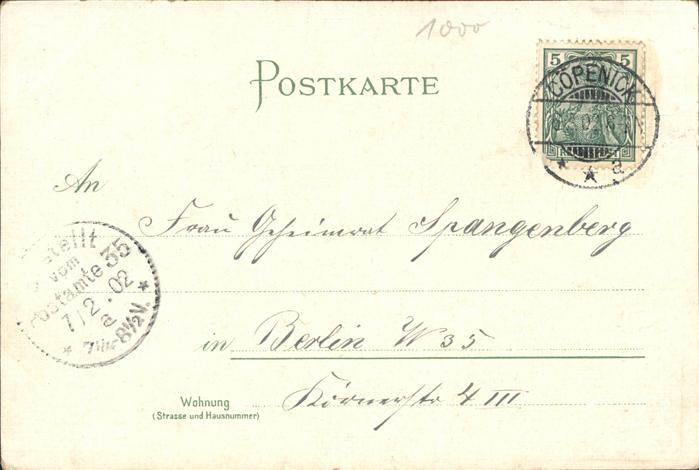 1000
POSTKARTE
5 5
CÖPENICK
* * a
An
Frau Geheimrat Spangenberg
Bestellt
vom
Postamte 35
7/2.02
7¼-8½V.
in Berlin W 35
Wohnung
(Strasse und Hausnummer)
Körnerstr 4 III